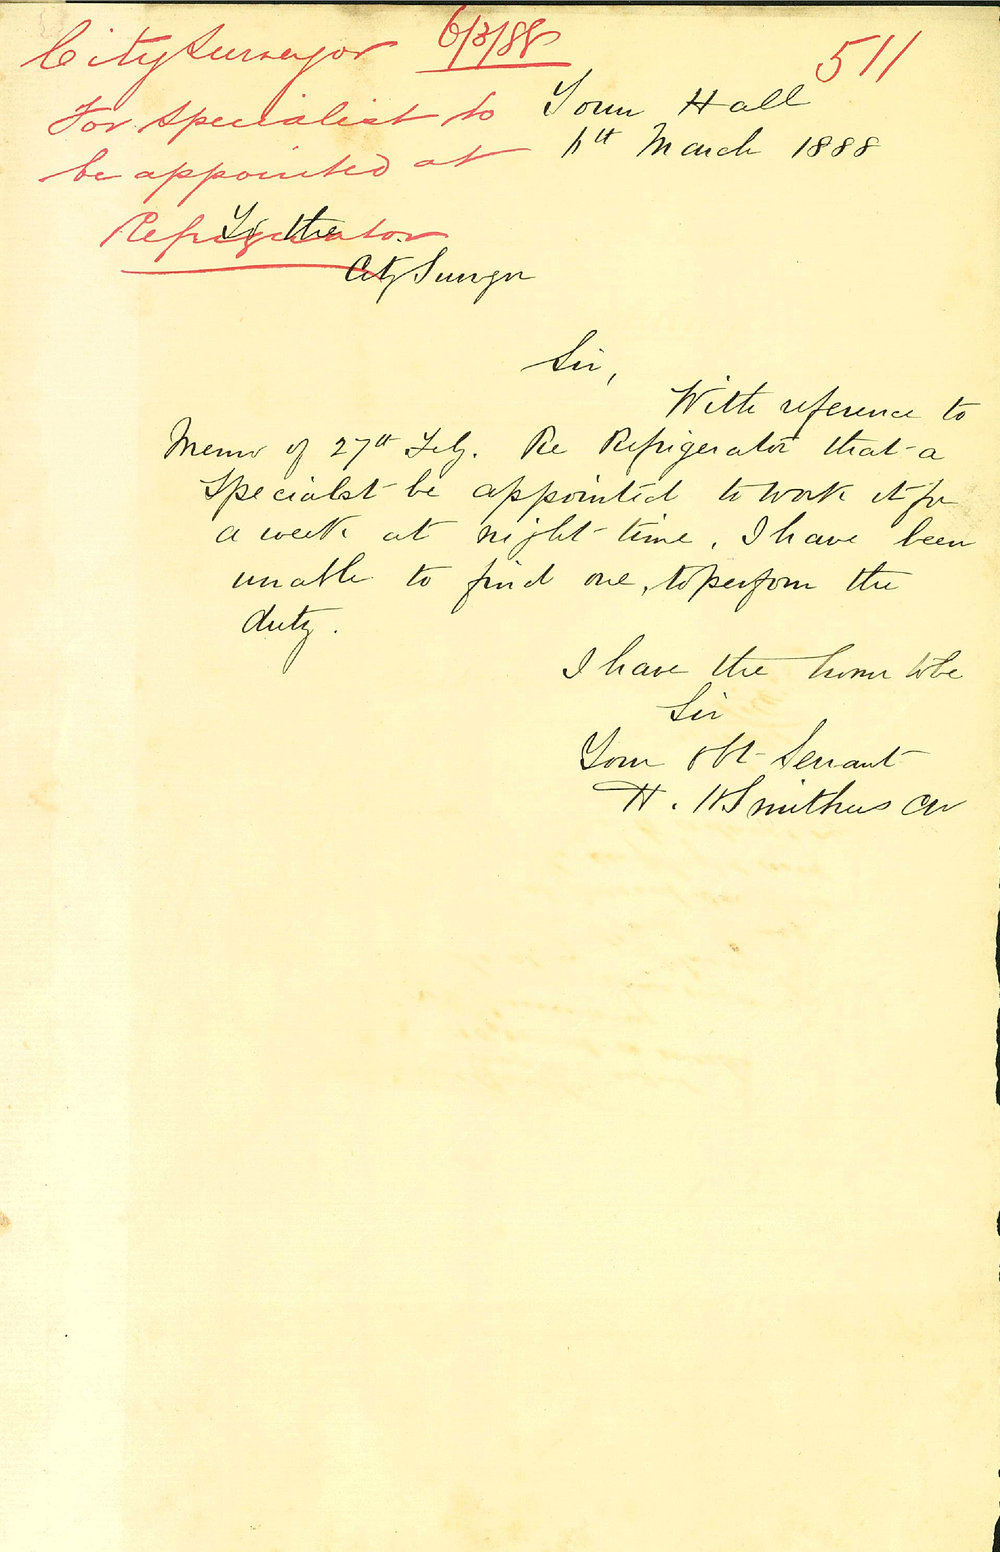 City Surveyor 6/3/88
511
For specialist to
be appointed at
Refrigerator
Town Hall
March 1888
To the
City Surveyor
Sir,
With reference to
Memo of 27th Feby. Re Refrigerator that a
specialst be appointed to work it for
a week at night time, I have been
unable to find one, to perform the
duty.
I have the honor to be
Sir
Your Obt Servant
H. H Smithers CW